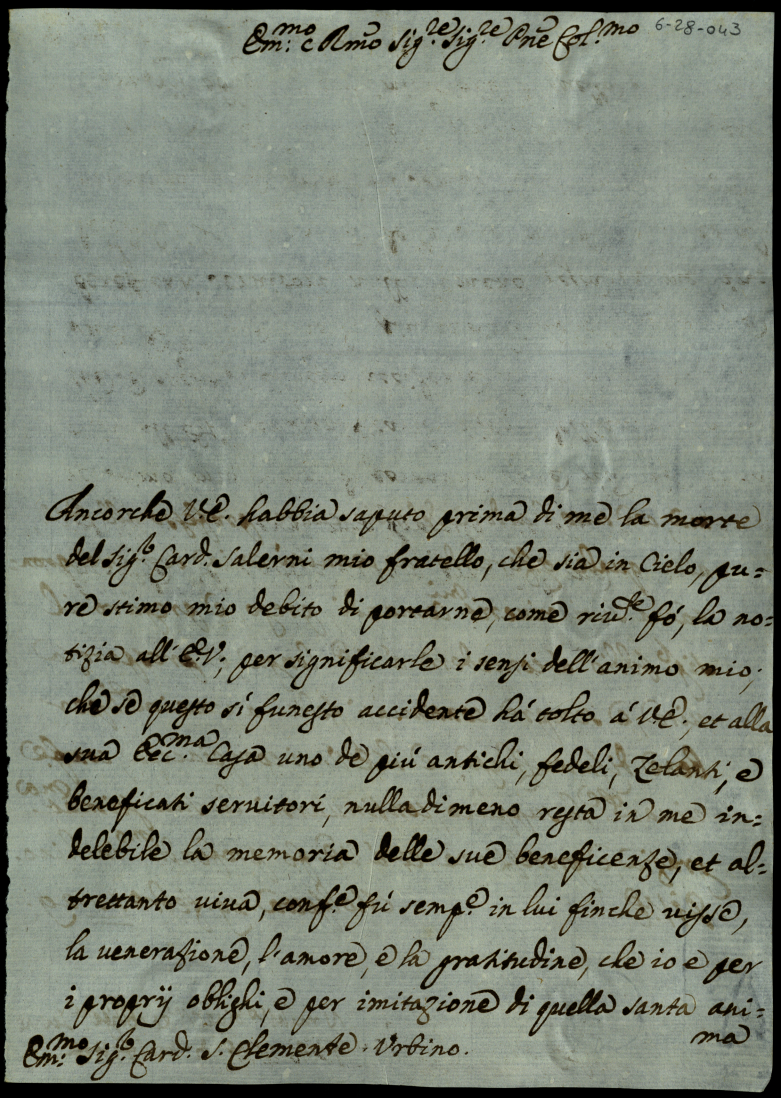 Em:mo e Rmo Sig:re Sig:re Pne Col:mo 6-28-043
Ancorche V.E. habbia saputo prima di me la morte
del Sig:r Card. Salerni mio fratello, che sia in Cielo, pu=
re stimo mio debito di portarne, come riu:te fó, la no=
tizia all'E.V., per significarle i sensi dell'animo mio;
che se questo sí funesto accidente há tolto á V.E., et alla
sua Ecc:ma Casa uno de piú antichi, fedeli, Zelanti, e
beneficati servitori, nulladimeno resta in me in=
delebile la memoria delle sue beneficenze, et al=
trettanto viva, conf:e fú semp:e in lui finche visse,
la venerazione, l'amore, e la gratitudine, che io e per
i proprij oblighi, e per imitazione di quella santa ani=
ma
Em:mo Sig:r Card. S. Clemente. Urbino.